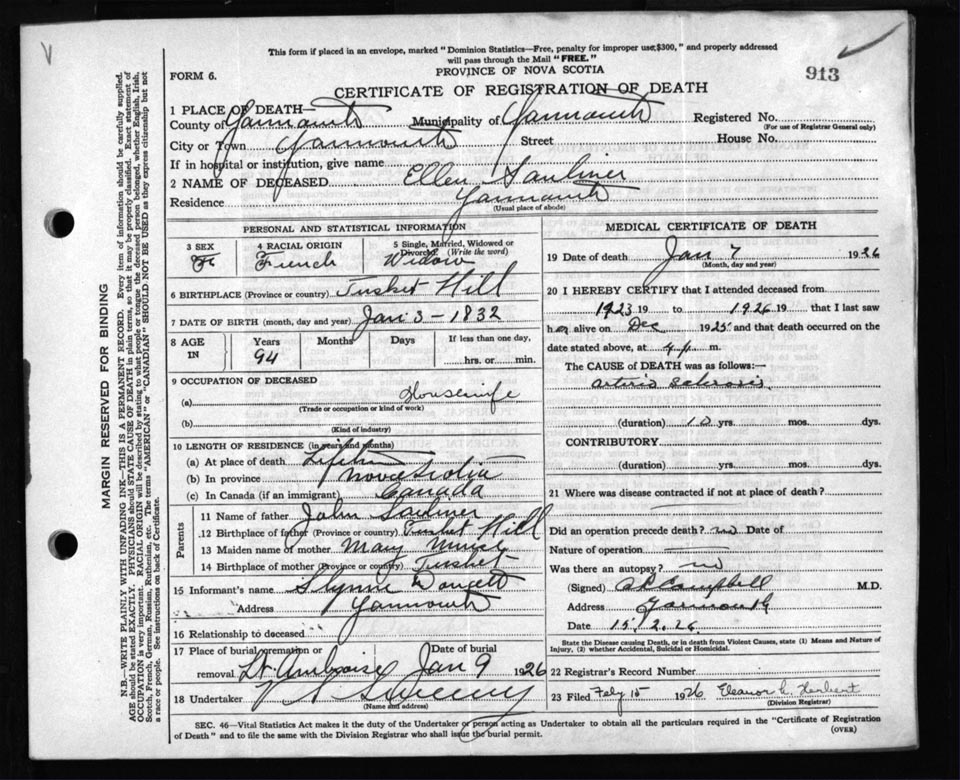 This form if placed in an envelope, marked "Dominion Statistics—Free, penalty for improper use $300," and properly addressed
will pass through the Mail "FREE."
PROVINCE OF NOVA SCOTIA
913
FORM 6.
CERTIFICATE OF REGISTRATION OF DEATH
1 PLACE OF DEATH—
County of Yarmouth Municipality of Yarmouth Registered No.
(For use of Registrar General only)
City or Town Yarmouth Street House No.
If in hospital or institution, give name
2 NAME OF DECEASED Ellen Saulnier
Residence Yarmouth
(Usual place of abode)
PERSONAL AND STATISTICAL INFORMATION
3 SEX
F
4 RACIAL ORIGIN
French
5 Single, Married, Widowed or
Divorced (Write the word)
Widow
6 BIRTHPLACE (Province or country) Tusket Hill
7 DATE OF BIRTH (month, day and year) Jan 3 - 1832
8 AGE IN
Years Months Days If less than one day,
94 hrs. or min.
9 OCCUPATION OF DECEASED
(a) Housewife
(Trade or occupation or kind of work)
(b)
(Kind of industry)
10 LENGTH OF RESIDENCE (in years and months)
(a) At place of death Lifetime
(b) In province Nova Scotia
(c) In Canada (if an immigrant) Canada
Parents
11 Name of father John Saulnier
12 Birthplace of father (Province or country) Tusket Hill
13 Maiden name of mother Mary
14 Birthplace of mother (Province or country) Tusket
15 Informant's name
Address Yarmouth
16 Relationship to deceased
17 Place of burial, cremation or Date of burial
removal St. Ambroise Jan 9 1926
18 Undertaker V S Sweeny
(Name and address)
MEDICAL CERTIFICATE OF DEATH
19 Date of death Jan 7 1926
(Month, day and year)
20 I HEREBY CERTIFY that I attended deceased from
1923 19 to 1926 19 that I last saw
her alive on Dec 1925 and that death occurred on the
date stated above, at 4 p m.
The CAUSE of DEATH was as follows:—
arterio sclerosis
(duration) 10 yrs. mos. dys.
CONTRIBUTORY
(duration) yrs. mos. dys.
21 Where was disease contracted if not at place of death?
Did an operation precede death? no Date of
Nature of operation
Was there an autopsy? no
(Signed) Campbell M.D.
Address Yarmouth
Date 15/2.26
State the Disease causing Death, or in death from Violent Causes, state (1) Means and Nature of
Injury, (2) whether Accidental, Suicidal or Homicidal.
22 Registrar's Record Number
23 Filed Feby 15 1926 Eleanor L. Herbert
(Division Registrar)
SEC. 46—Vital Statistics Act makes it the duty of the Undertaker or person acting as Undertaker to obtain all the particulars required in the "Certificate of Registration
of Death" and to file the same with the Division Registrar who shall issue the burial permit.
(OVER)
MARGIN RESERVED FOR BINDING
N.B.—WRITE PLAINLY WITH UNFADING INK—THIS IS A PERMANENT RECORD. Every item of information should be carefully supplied.
AGE should be stated EXACTLY. PHYSICIANS should STATE CAUSE OF DEATH in plain terms, so that it may be properly classified. Exact statement of
OCCUPATION is very important. RACIAL ORIGIN will be described by stating to what people or tongue the deceased person belonged, whether English, Irish,
Scotch, French, German, Russian, Ruthenian, etc. The terms "AMERICAN" or "CANADIAN" SHOULD NOT BE USED as they express citizenship but not
a race or people. See instructions on back of Certificate.